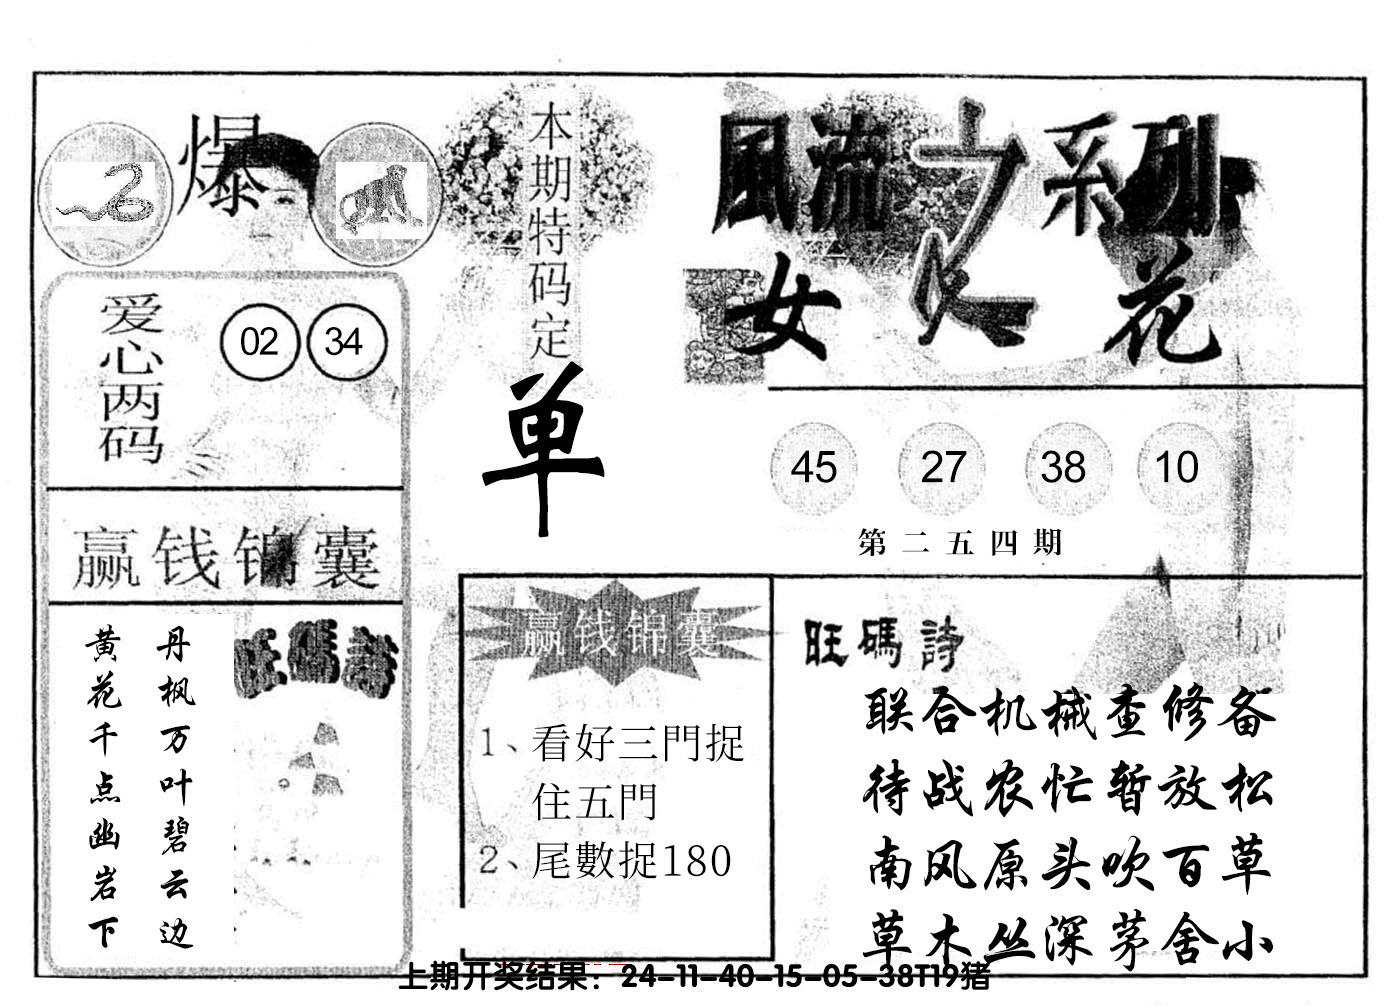 爆
本期特码定
单
風流之系列
女人花
爱心两码
02 34
45 27 38 10
第二五四期
赢钱锦囊
丹枫万叶碧云边
黄花千点幽岩下
旺碼詩
赢钱锦囊
1、看好三門捉
住五門
2、尾數捉180
旺碼詩
联合机械查修备
待战农忙暂放松
南风原头吹百草
草木丛深茅舍小
上期开奖结果：24-11-40-15-05-38T19猪